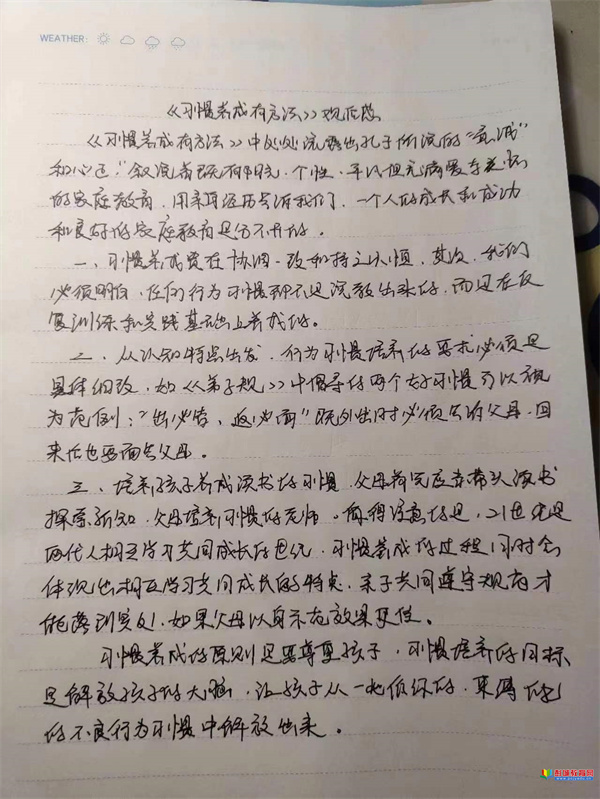 WEATHER:
《习惯养成有方法》观后感
《习惯养成有方法》中处处流露出孔子所说的“真诚”
和心态。叙说着既有阳光、个性、平凡但充满爱与关怀
的家庭教育,用亲身经历告诉我们,一个人的成长和成功
和良好的家庭教育是分不开的。
一、习惯养成贵在协调一致和持之以恒,其次,我们
必须明白,任何行为习惯都不是说教出来的,而是在反
复训练和实践基础上养成的。
二、从认知特点出发,行为习惯培养的要求必须是
具体细致,如《弟子规》中倡导的两个好习惯可以视
为范例:“出必告,返必面”既外出时必须告诉父母,回
来后也要面告父母。
三、培养孩子养成读书的习惯,父母首先应当带头读书
探索新知,父母培养习惯的老师。值得注意的是,21世纪是
两代人相互学习共同成长的世纪,习惯养成的过程同时会
体现出相互学习共同成长的特点,亲子共同遵守规存才
能落到实处,如果父母以身示范效果更佳。
习惯养成的原则是要尊重孩子,习惯培养的目标
是解放孩子的大脑,让孩子从一些低级的,
的不良行为习惯中解放出来。